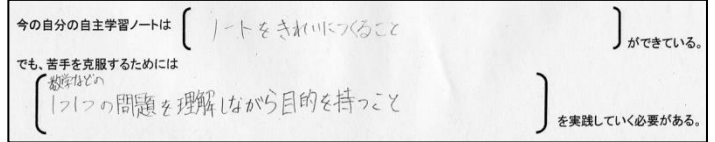 今の自分の自主学習ノートは
ノートをきれいにつくること
ができている。
でも、苦手を克服するためには
数学などの
1つ1つの問題を理解しながら目的を持つこと
を実践していく必要がある。